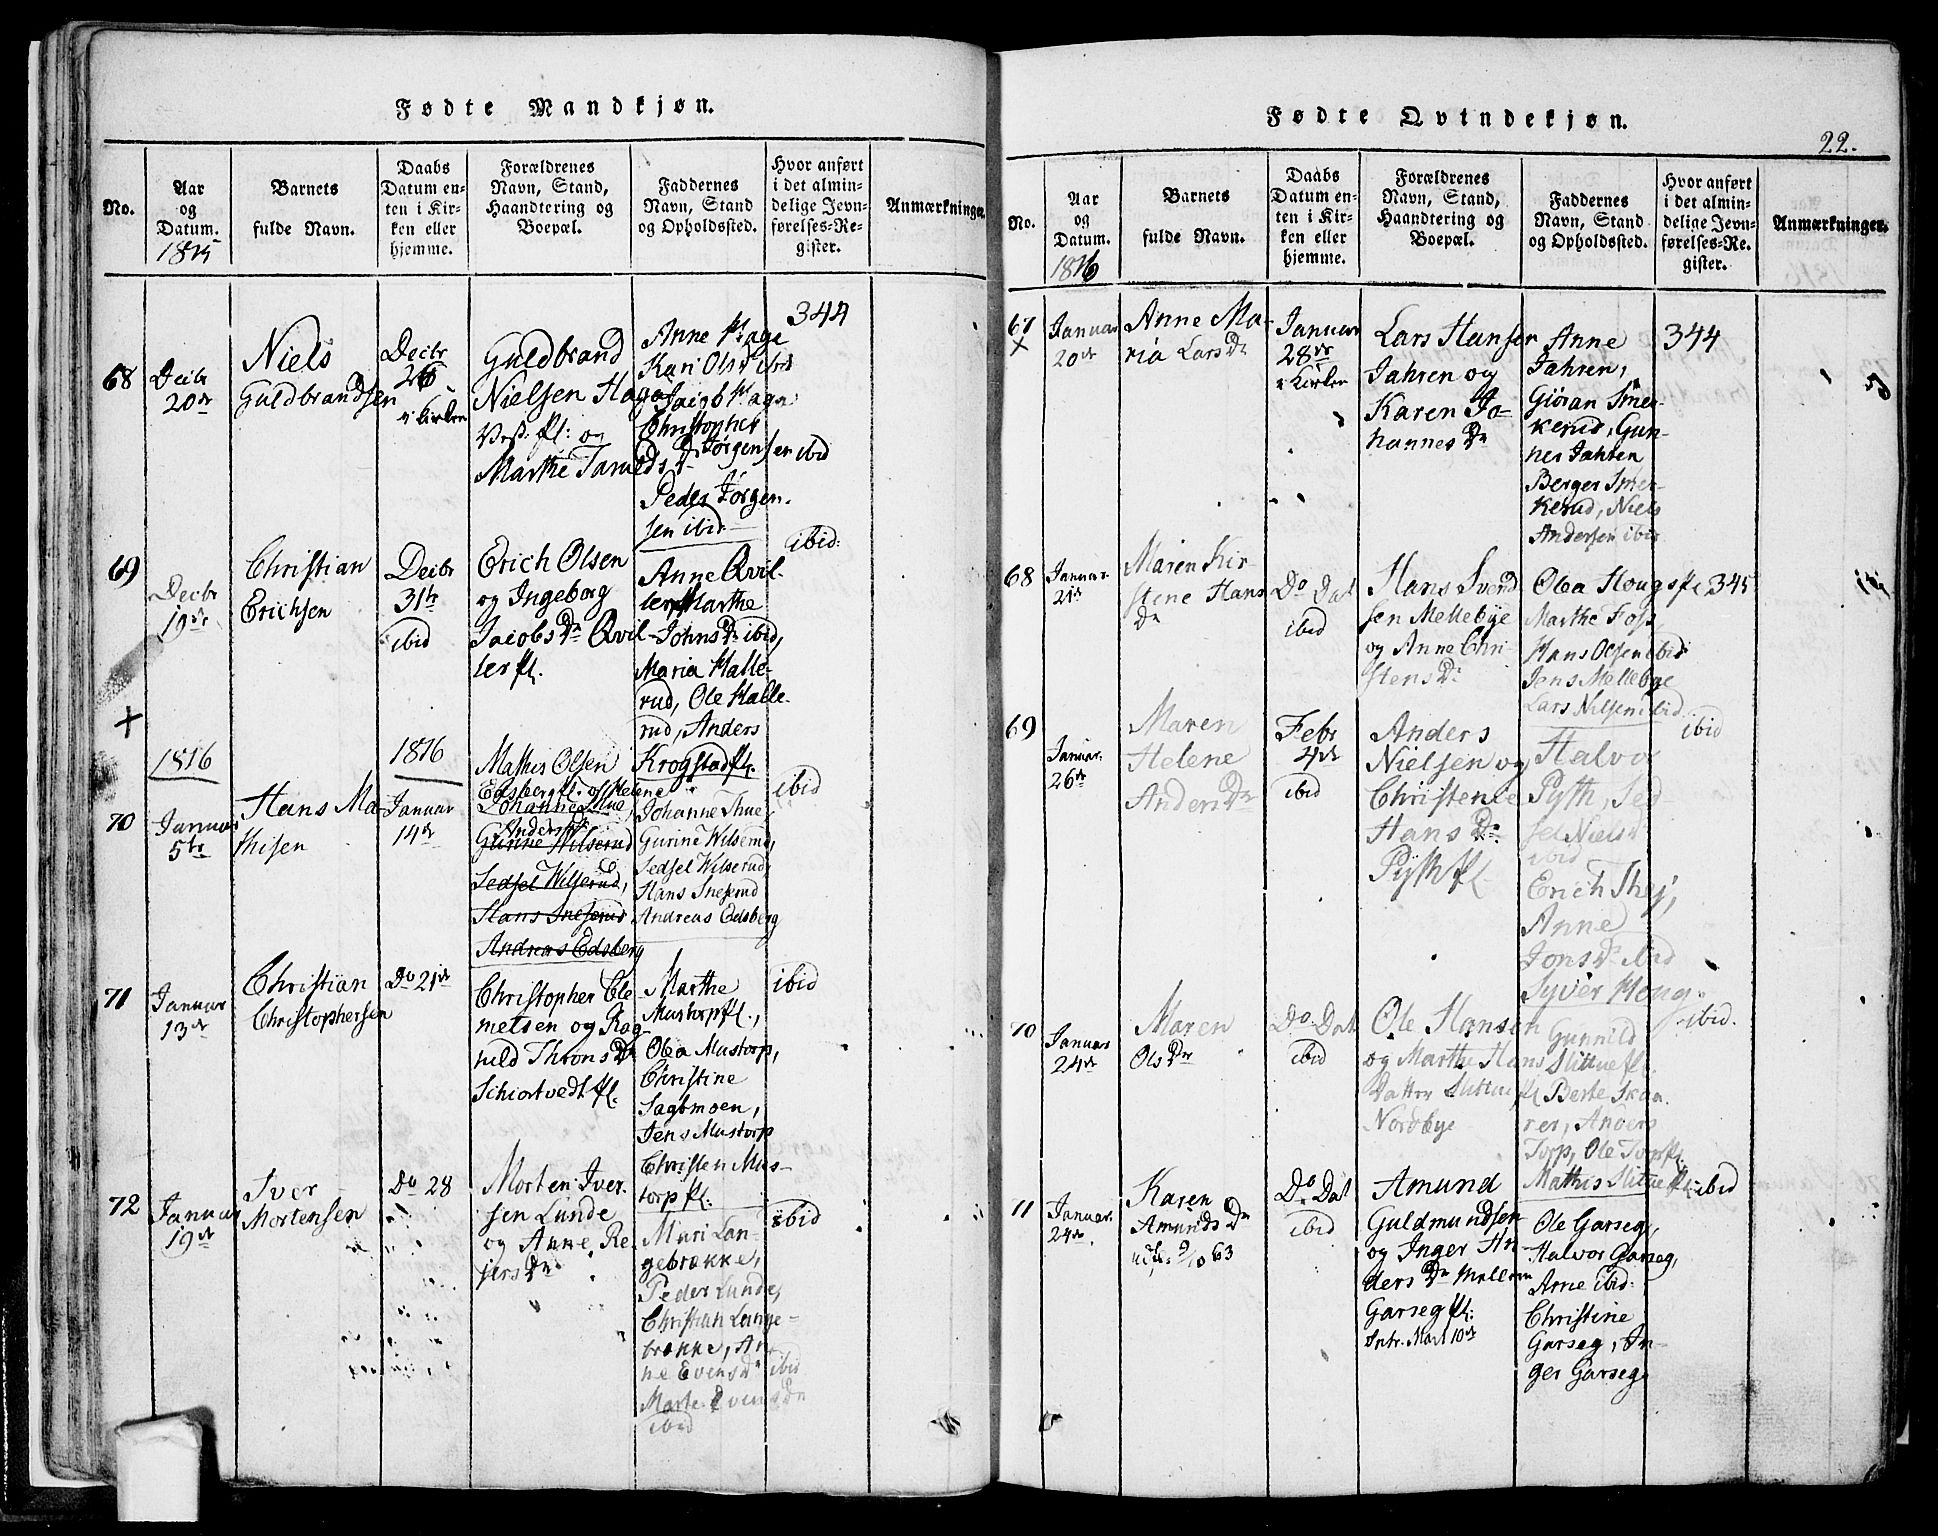 Fødte Mandkjøn.
No.
Aar
og
Datum.
1815
Barnets
fulde Navn.
Daabs
Datum en-
ten i Kir-
ken eller
hjemme.
Forældrenes
Navn, Stand,
Haandtering og
Boepæl.
Faddernes
Navn, Stand
og Opholdssted.
Hvor anført
i det almin-
delige Jevn-
førelses-Re-
gister.
Anmærkninger.
68
Decbr
20de
Niels
Guldbrandsen
Decbr
26
i Kirken
Guldbrand
Nielsen Hage
Vest: fl: og
Marthe
Anne Hage
Kari Olsdr ibid
Jacob Hagen
Christopher
Jørgensen ibid
Peder Jørgen-
sen ibid
344
69
Decbr
19de
Christian
Erichsen
Decbr
31te
ibid
Erich Olsen
og Ingeborg
Jacobs Dr Qvil-
ler fl.
Anne Qvil-
ler, Marthe
Johns Dr ibid,
Maria Halle-
rud, Ole Halle-
rud, Anders
Krogstad fl.
ibid:
1816
1816
70
Januar
5te
Hans Ma-
thisen
Januar
14de
Mathis Olsen
Edsberg fl. og Helene
Johanne Thue,
Anders Dr
Gurine Wilserud
Sedsel Wilserud,
Hans Sneserud
Andreas Edsberg
Johanne Thue,
Gurine Wilserud,
Sedsel Wilserud,
Hans Sneserud
Andreas Edsberg
ibid
71
Januar
13de
Christian
Christophersen
Do 21de
Christopher Cle-
metsen og Rag-
nild Throns Dr
Schiortvedt fl.
Marthe
Mustorp fl.,
Olea Mustorp,
Christine
Sagbmoen,
Jens Mustorp
Christen Mus-
torp fl.
ibid
72
Januar
19de
Iver
Mortensen
Do 28
Morten Iver-
sen Lunde
og Anne Re-
iers Dr
Mari Lan-
gebrække,
Peder Lunde,
Christian Lange-
brække, An-
ne Evens Dr ibid
Marte Evens Dr
ibid
ibid
Fødte Qvindekjøn.
22.
No.
Aar
og
Datum.
1816
Barnets
fulde Navn.
Daabs
Datum en-
ten i Kir-
ken eller
hjemme.
Forældrenes
Navn, Stand,
Haandtering og
Boepæl.
Faddernes
Navn, Stand
og Opholdssted.
Hvor anført
i det almin-
delige Jevn-
førelses-Re-
gister.
Anmærkninger.
67
Januar
20de
Anne Ma-
ria Lars Dr
Januar
28de
i Kirken
Lars Hansen
Jahren og
Karen Jo-
hannes Dr
Anne
Jahren,
Gioran Smer-
kerud, Gun-
ner Jahren
Berger Smer-
kerud, Niels
Andersen ibid
344
68
Januar
21de
Maren Kir-
stene Hans
Dr
Do Dat
ibid
Hans Svend-
sen Mellebye
og Anne Chri-
stens Dr
Olea Hougs fl.
Marthe Foss
Hans Olsen ibid
Jens Mellebye
Lars Nilsen ibid
345
69
Januar
26de
Maren
Helene
Anders Dr
Febr
4de
ibid
Anders
Nielsen og
Christense
Hans Dr
Pyth fl.
Halvo
Pyth, Sed-
sel Niels Dr
ibid
Erich Thej,
Anne
Jons Dr ibid
Syver Houg.
ibid
70
Januar
24de
Maren
Ols Dr
Do Dat
ibid
Ole Hansen
og Marthe Hans
Datter Slittue fl.
Nordbye
Gunnild
Slittue fl.
Berte Skaa-
rer, Anders
Torp, Ole Torp fl.
Mathis Slittue fl.
ibid.
71
Januar
24de
Karen
Amunds Dr
9/10 63
Do Dat
ibid
Amund
Guldmundsen
og Inger An-
ders Dr
Garseg fl:
Intr. Mart 10de
Ole Garseg,
Halvor Garseg,
Arne ibid:
Christine
Garseg, In-
ger Garseg
ibid